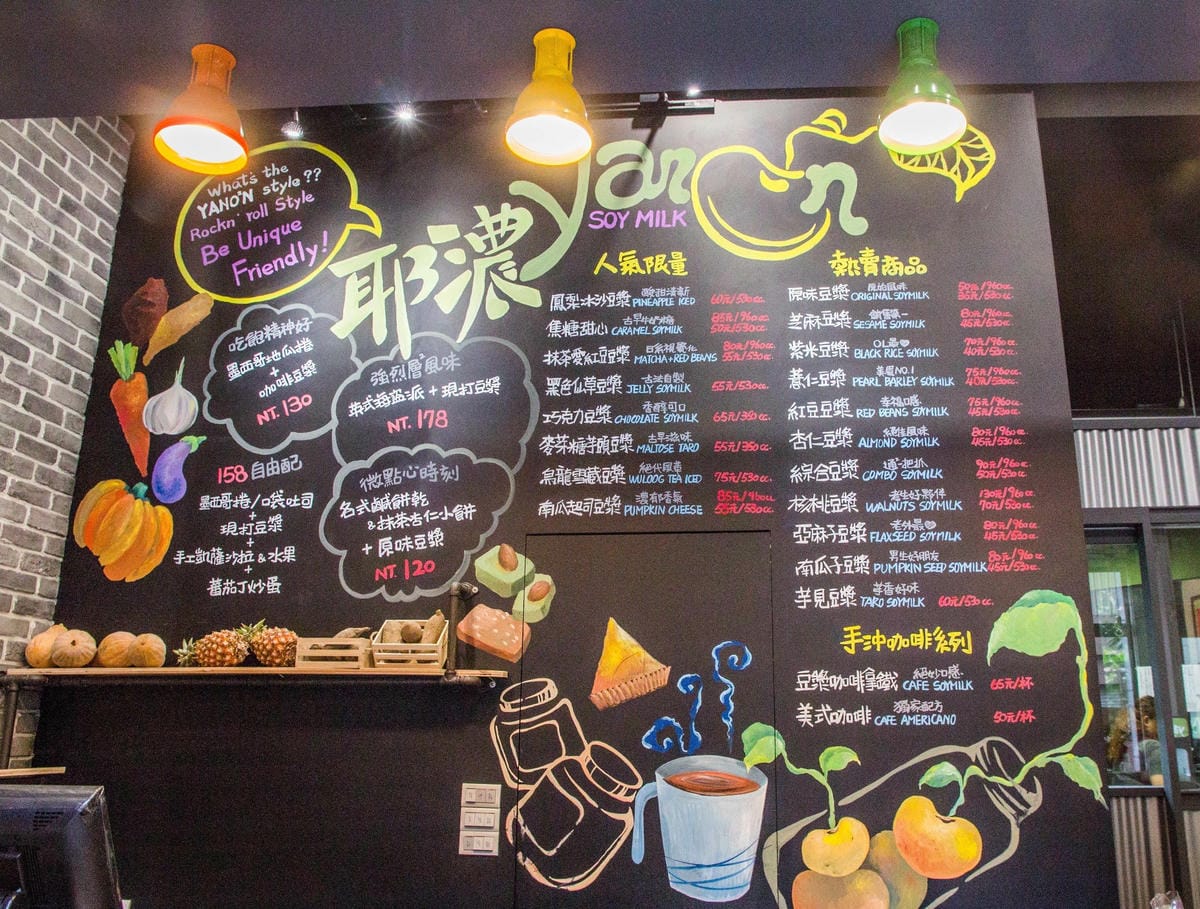 What's the
YANO'N style??
Rockn' roll Style
Be Unique
Friendly!
耶濃
yanOn
SOY MILK
吃飽精神好
墨西哥地瓜捲
+
咖啡豆漿
NT. 130
強烈層風味
+ 現打豆漿
NT. 178
158 自由配
墨西哥捲/口袋吐司
+
現打豆漿
+
手工凱薩沙拉 & 水果
+
蕃茄丁炒蛋
微點心時刻
各式鹹餅乾
& 抹茶杏仁小餅
+ 原味豆漿
NT. 120
人氣限量
鳳梨冰沙豆漿 酸甜清新 PINEAPPLE ICED 60元/530cc.
焦糖甜心 CARAMEL SOYMILK 85元/960cc. 50元/530cc.
抹茶愛紅豆豆漿 MATCHA+RED BEANS 80元/960cc. 55元/530cc.
黑色仙草豆漿 古法自製 JELLY SOYMILK 55元/530cc.
巧克力豆漿 香醇可口 CHOCOLATE SOYMILK 65元/350cc.
麥芽糖芋頭豆漿 古早滋味 MALTOSE TARO 55元/350cc.
烏龍雪藏豆漿 絕代風香 WULOOG TEA ICED 75元/530cc.
南瓜起司豆漿 濃郁香氣 PUMPKIN CHEESE 85元/960cc. 55元/530cc.
熱賣商品
原味豆漿 原始風味 ORIGINAL SOYMILK 50元/960cc. 35元/530cc.
芝麻豆漿 銷售第一 SESAME SOYMILK 80元/960cc. 45元/530cc.
紫米豆漿 OL最♥ BLACK RICE SOYMILK 70元/960cc. 40元/530cc.
薏仁豆漿 美眉NO.1 PEARL BARLEY SOYMILK 75元/960cc. 40元/530cc.
紅豆豆漿 幸福口感 RED BEANS SOYMILK 75元/960cc. 45元/530cc.
杏仁豆漿 絕佳風味 ALMOND SOYMILK 80元/960cc. 45元/530cc.
綜合豆漿 通通一把抓 COMBO SOYMILK 90元/960cc. 50元/530cc.
核桃豆漿 考生好夥伴 WALNUTS SOYMILK 130元/960cc. 70元/530cc.
亞麻子豆漿 老外最♥ FLAXSEED SOYMILK 80元/960cc. 45元/530cc.
南瓜子豆漿 男生好朋友 PUMPKIN SEED SOYMILK 80元/960cc. 45元/530cc.
芋見豆漿 芋香好味 TARO SOYMILK 60元/530cc.
手沖咖啡系列
豆漿咖啡拿鐵 絕妙口感 CAFE SOYMILK 65元/杯
美式咖啡 獨家配方 CAFE AMERICANO 50元/杯